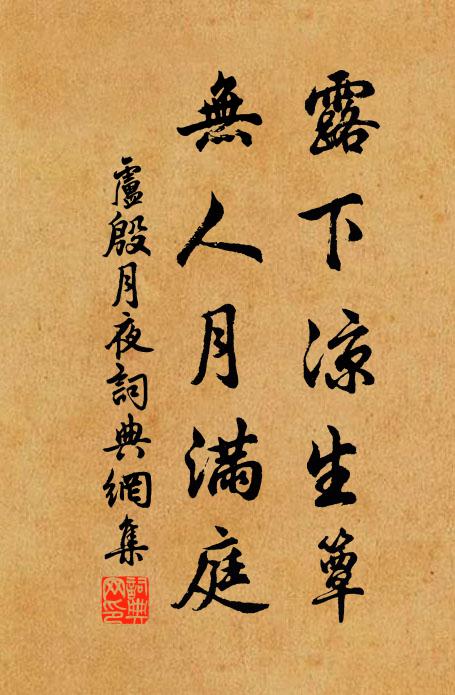 露下涼生簟
無人月滿庭
盧殷月夜詞典網集
詞典網印